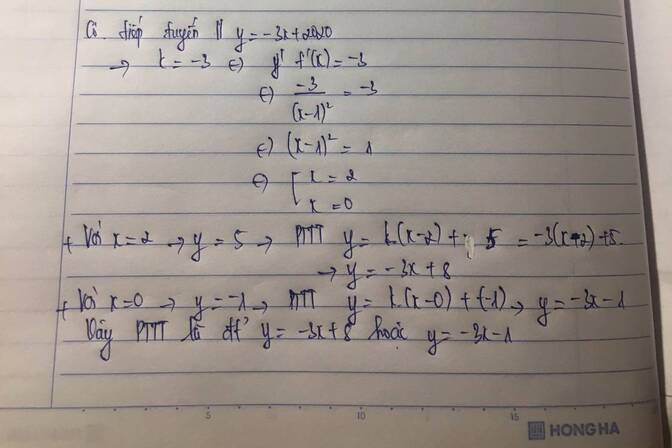 Có tiếp tuyến // y = -3x + 2020
→ k = -3 ⇔ y' f'(x) = -3
⇔ -3/(x-1)² = -3
⇔ (x-1)² = 1
⇔ [ x = 2
x = 0
+ Với x = 2 → y = 5 → PTTT y = k(x-2) + 5 = -3(x-2) + 5.
→ y = -3x + 8
+ Với x = 0 → y = -1 → PTTT y = k(x-0) + (-1) → y = -3x - 1
Vậy PTTT là đt y = -3x + 8 hoặc y = -3x - 1
5 10 15
HONG HA